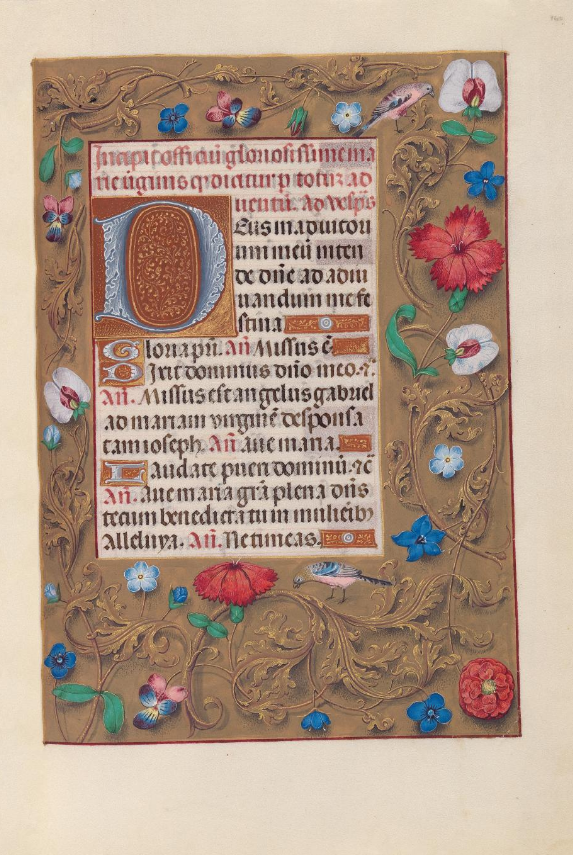 Incipit officiũ gloriosissime ma
rie uirginis q̃ dicitur p totũ ad
uentũ. Ad vesp̃s
Deus in adiutori
um meũ inten
de dñe ad adiu
uandum me fe
stina
Gloria pr̃i. Añ Missus ẽ
Dixit dominus dño meo. ⁊.
Añ. Missus est angelus gabriel
ad mariam virginẽ desponsa
tam ioseph. Añ aue maria.
Laudate pueri dominũ. ⁊c̃
Añ. aue maria gr̃a plena dñs
tecum benedicta tu in mulierib⁹
Alleluya. Añ. Ne timeas.